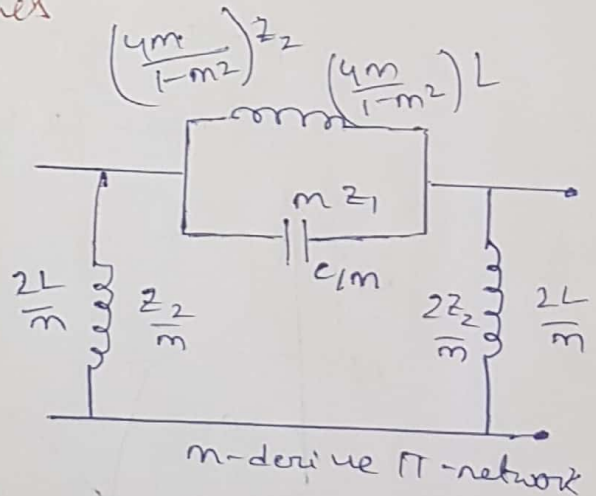 (4m/1-m²) Z₂
(4m/1-m²) L
m Z₁
C/m
2L/m
Z₂/m
2Z₂/m
2L/m
m-derive π-network